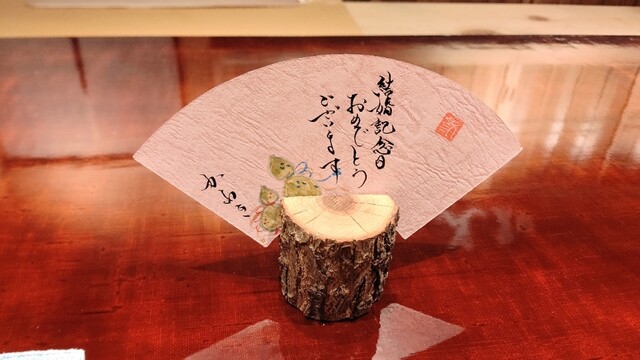 結婚記念日
おめでとう
ございます